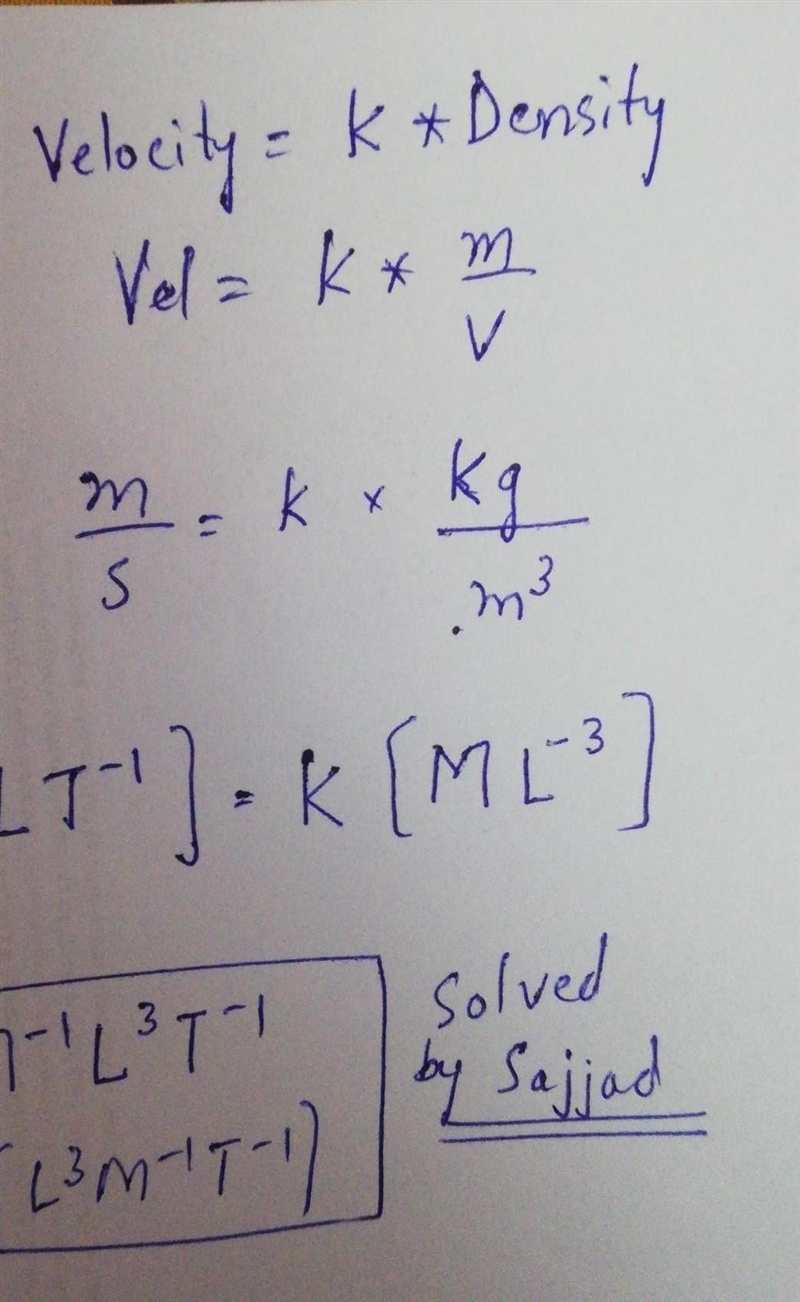 Velocity = K * Density
Vel = K * m/V
m/s = K × Kg/m³
L T⁻¹] = K [M L⁻³]
⁻¹ L³ T⁻¹
L³ M⁻¹ T⁻¹)
Solved
by Sajjad